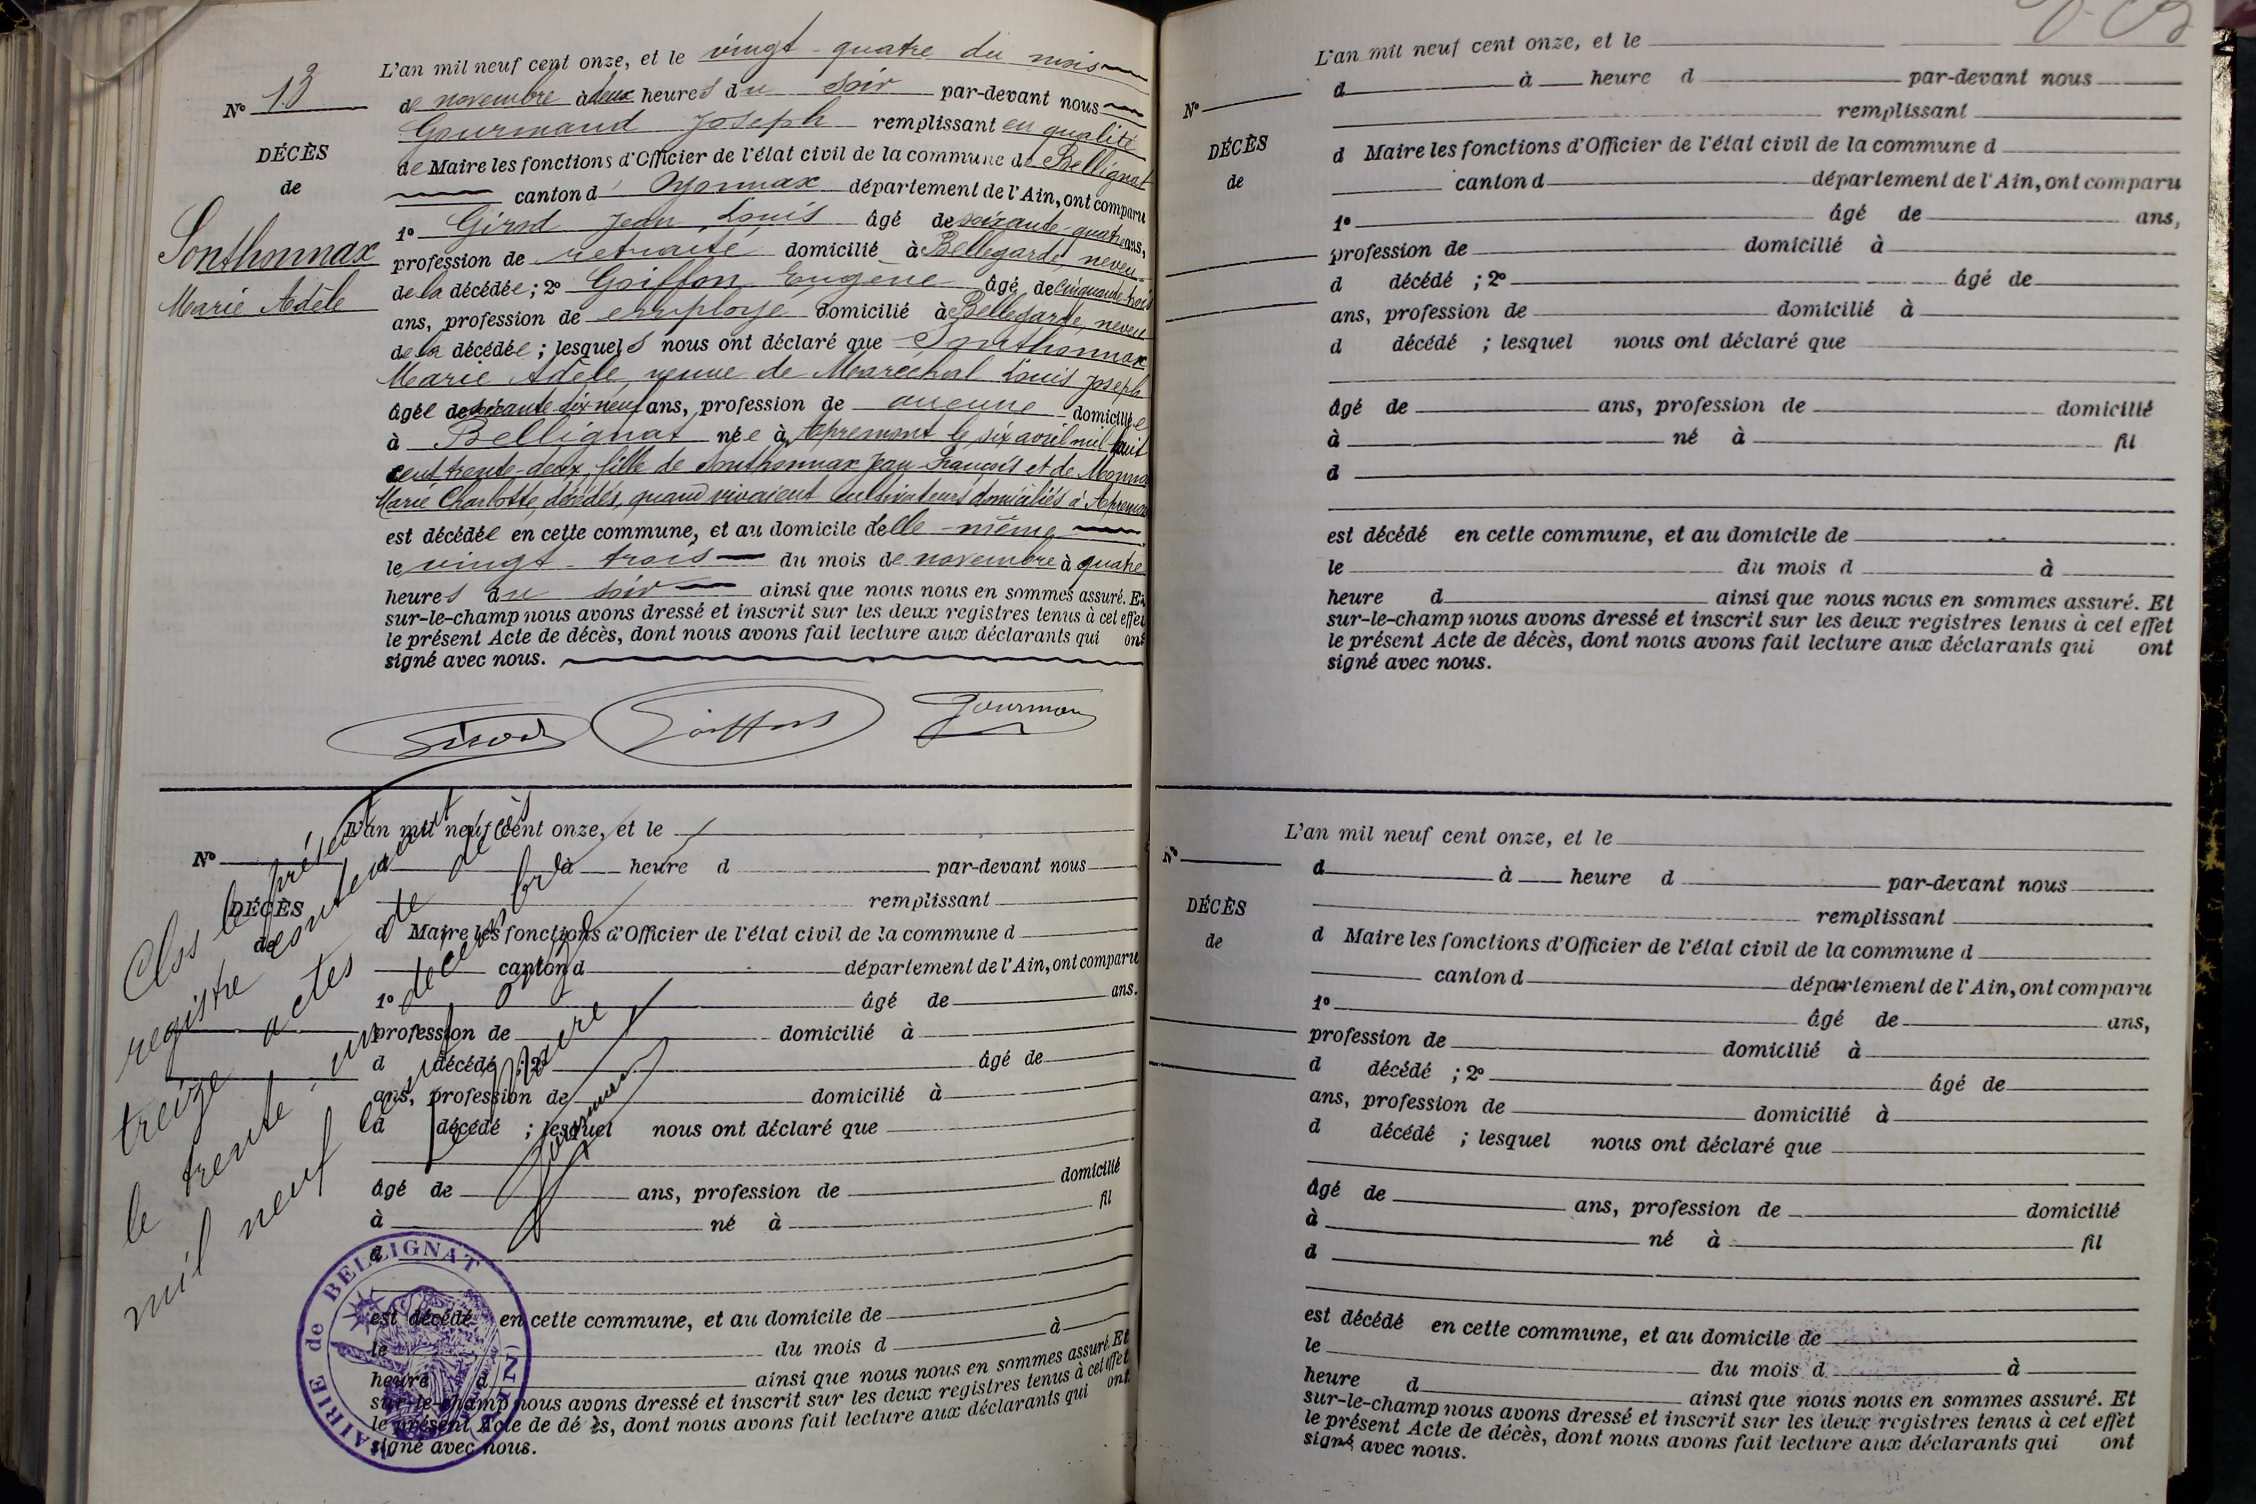 L'an mil neuf cent onze, et le vingt-quatre du mois
N° 13
de novembre à deux heures du soir par-devant nous
Gourmand Joseph remplissant en qualité
DÉCÈS
de Maire les fonctions d'Officier de l'état civil de la commune de Bellignat
de
canton d'Oyonnax département de l'Ain, ont comparu
Sonthonnax
Marie Adèle
1° Girod Jean Louis âgé de soixante-quatre ans,
profession de retraité domicilié à Bellegarde, neveu
de la décédée ; 2° Goiffon Eugène âgé de cinquante-trois
ans, profession de employé domicilié à Bellegarde, neveu
de la décédée ; lesquels nous ont déclaré que Sonthonnax
Marie Adèle, veuve de Maréchal Louis Joseph
âgée de soixante dix-neuf ans, profession de aucune domiciliée
à Bellignat née à Apremont le six avril mil huit
cent trente-deux, fille de Sonthonnax Jean-François et de
Marie Charlotte, décédés, quand vivaient cultivateurs domiciliés à
est décédée en cette commune, et au domicile d'elle-même
le vingt-trois du mois de novembre à quatre
heures du soir ainsi que nous nous en sommes assuré. Et
sur-le-champ nous avons dressé et inscrit sur les deux registres tenus à cet effet
le présent Acte de décès, dont nous avons fait lecture aux déclarants qui ont
signé avec nous.
Girod Goiffon Gourmand
L'an mil neuf cent onze, et le
N°
d à heure d par-devant nous
remplissant
DÉCÈS
d Maire les fonctions d'Officier de l'état civil de la commune d
de
canton d département de l'Ain, ont comparu
1° âgé de ans.
profession de domicilié à
d décédé ; 2° âgé de
ans, profession de domicilié à
d décédé ; lesquel nous ont déclaré que
âgé de ans, profession de domicilié
à né à fil
d
est décédé en cette commune, et au domicile de
le du mois d à
heure d ainsi que nous nous en sommes assuré. Et
sur-le-champ nous avons dressé et inscrit sur les deux registres tenus à cet effet
le présent Acte de dé ès, dont nous avons fait lecture aux déclarants qui ont
signé avec nous.
Clos le présent
registre contenant
treize actes de décès
le trente-un décembre
mil neuf cent onze
Le Maire
Gourmand
MAIRIE de BELLIGNAT (AIN)
L'an mil neuf cent onze, et le
d à heure d par-devant nous
N°
remplissant
DÉCÈS
d Maire les fonctions d'Officier de l'état civil de la commune d
de
canton d département de l'Ain, ont comparu
1° âgé de ans,
profession de domicilié à
d décédé ; 2° âgé de
ans, profession de domicilié à
d décédé ; lesquel nous ont déclaré que
âgé de ans, profession de domicilié
à né à fil
d
est décédé en cette commune, et au domicile de
le du mois d à
heure d ainsi que nous nous en sommes assuré. Et
sur-le-champ nous avons dressé et inscrit sur les deux registres tenus à cet effet
le présent Acte de décès, dont nous avons fait lecture aux déclarants qui ont
signé avec nous.
L'an mil neuf cent onze, et le
N°
d à heure d par-devant nous
remplissant
DÉCÈS
d Maire les fonctions d'Officier de l'état civil de la commune d
de
canton d département de l'Ain, ont comparu
1° âgé de ans,
profession de domicilié à
d décédé ; 2° âgé de
ans, profession de domicilié à
d décédé ; lesquel nous ont déclaré que
âgé de ans, profession de domicilié
à né à fil
d
est décédé en cette commune, et au domicile de
le du mois d à
heure d ainsi que nous nous en sommes assuré. Et
sur-le-champ nous avons dressé et inscrit sur les deux registres tenus à cet effet
le présent Acte de décès, dont nous avons fait lecture aux déclarants qui ont
signé avec nous.